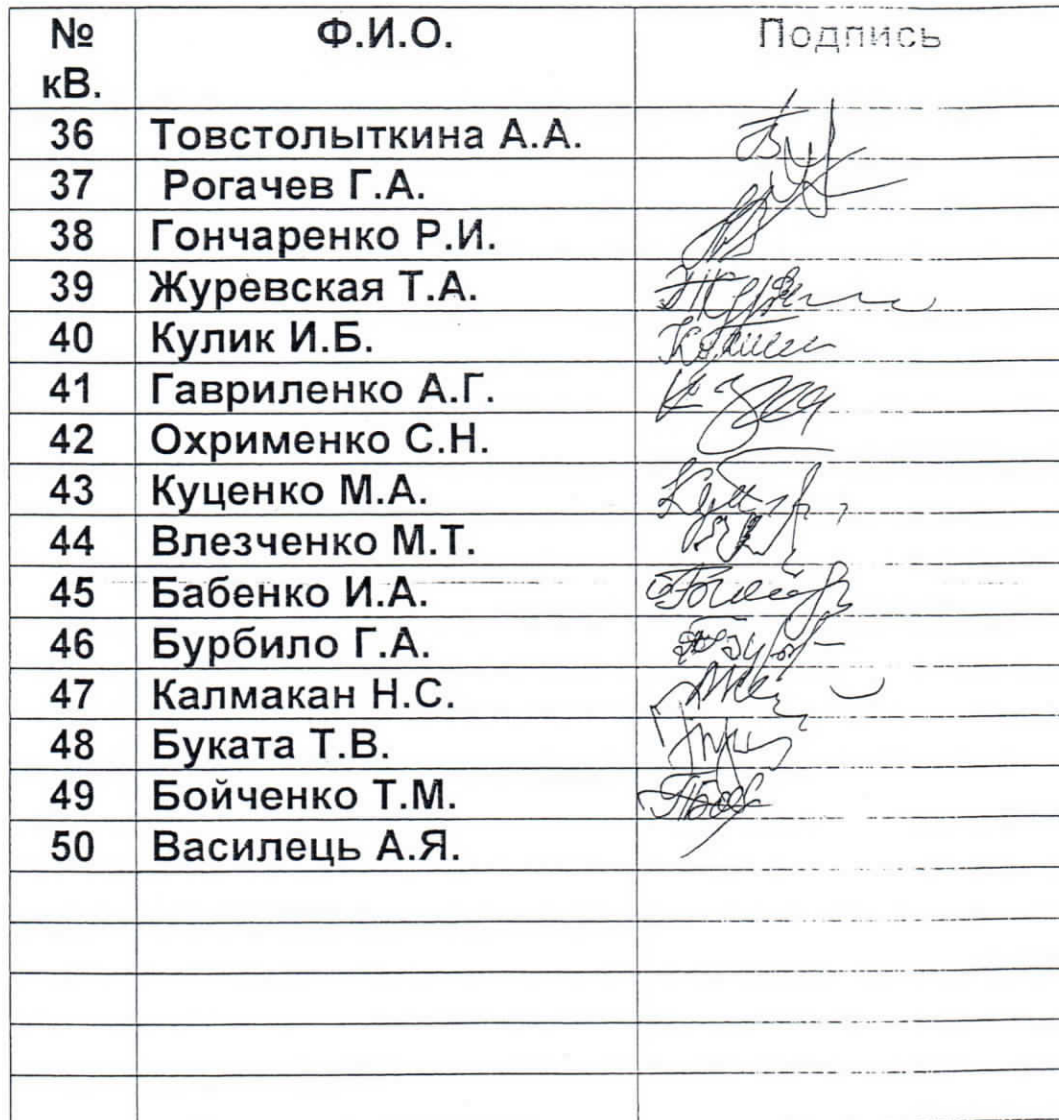 № Ф.И.О. Подпись
кв.
36 Товстолыткина А.А.
37 Рогачев Г.А.
38 Гончаренко Р.И.
39 Журевская Т.А.
40 Кулик И.Б.
41 Гавриленко А.Г.
42 Охрименко С.Н.
43 Куценко М.А.
44 Влезченко М.Т.
45 Бабенко И.А.
46 Бурбило Г.А.
47 Калмакан Н.С.
48 Буката Т.В.
49 Бойченко Т.М.
50 Василець А.Я.